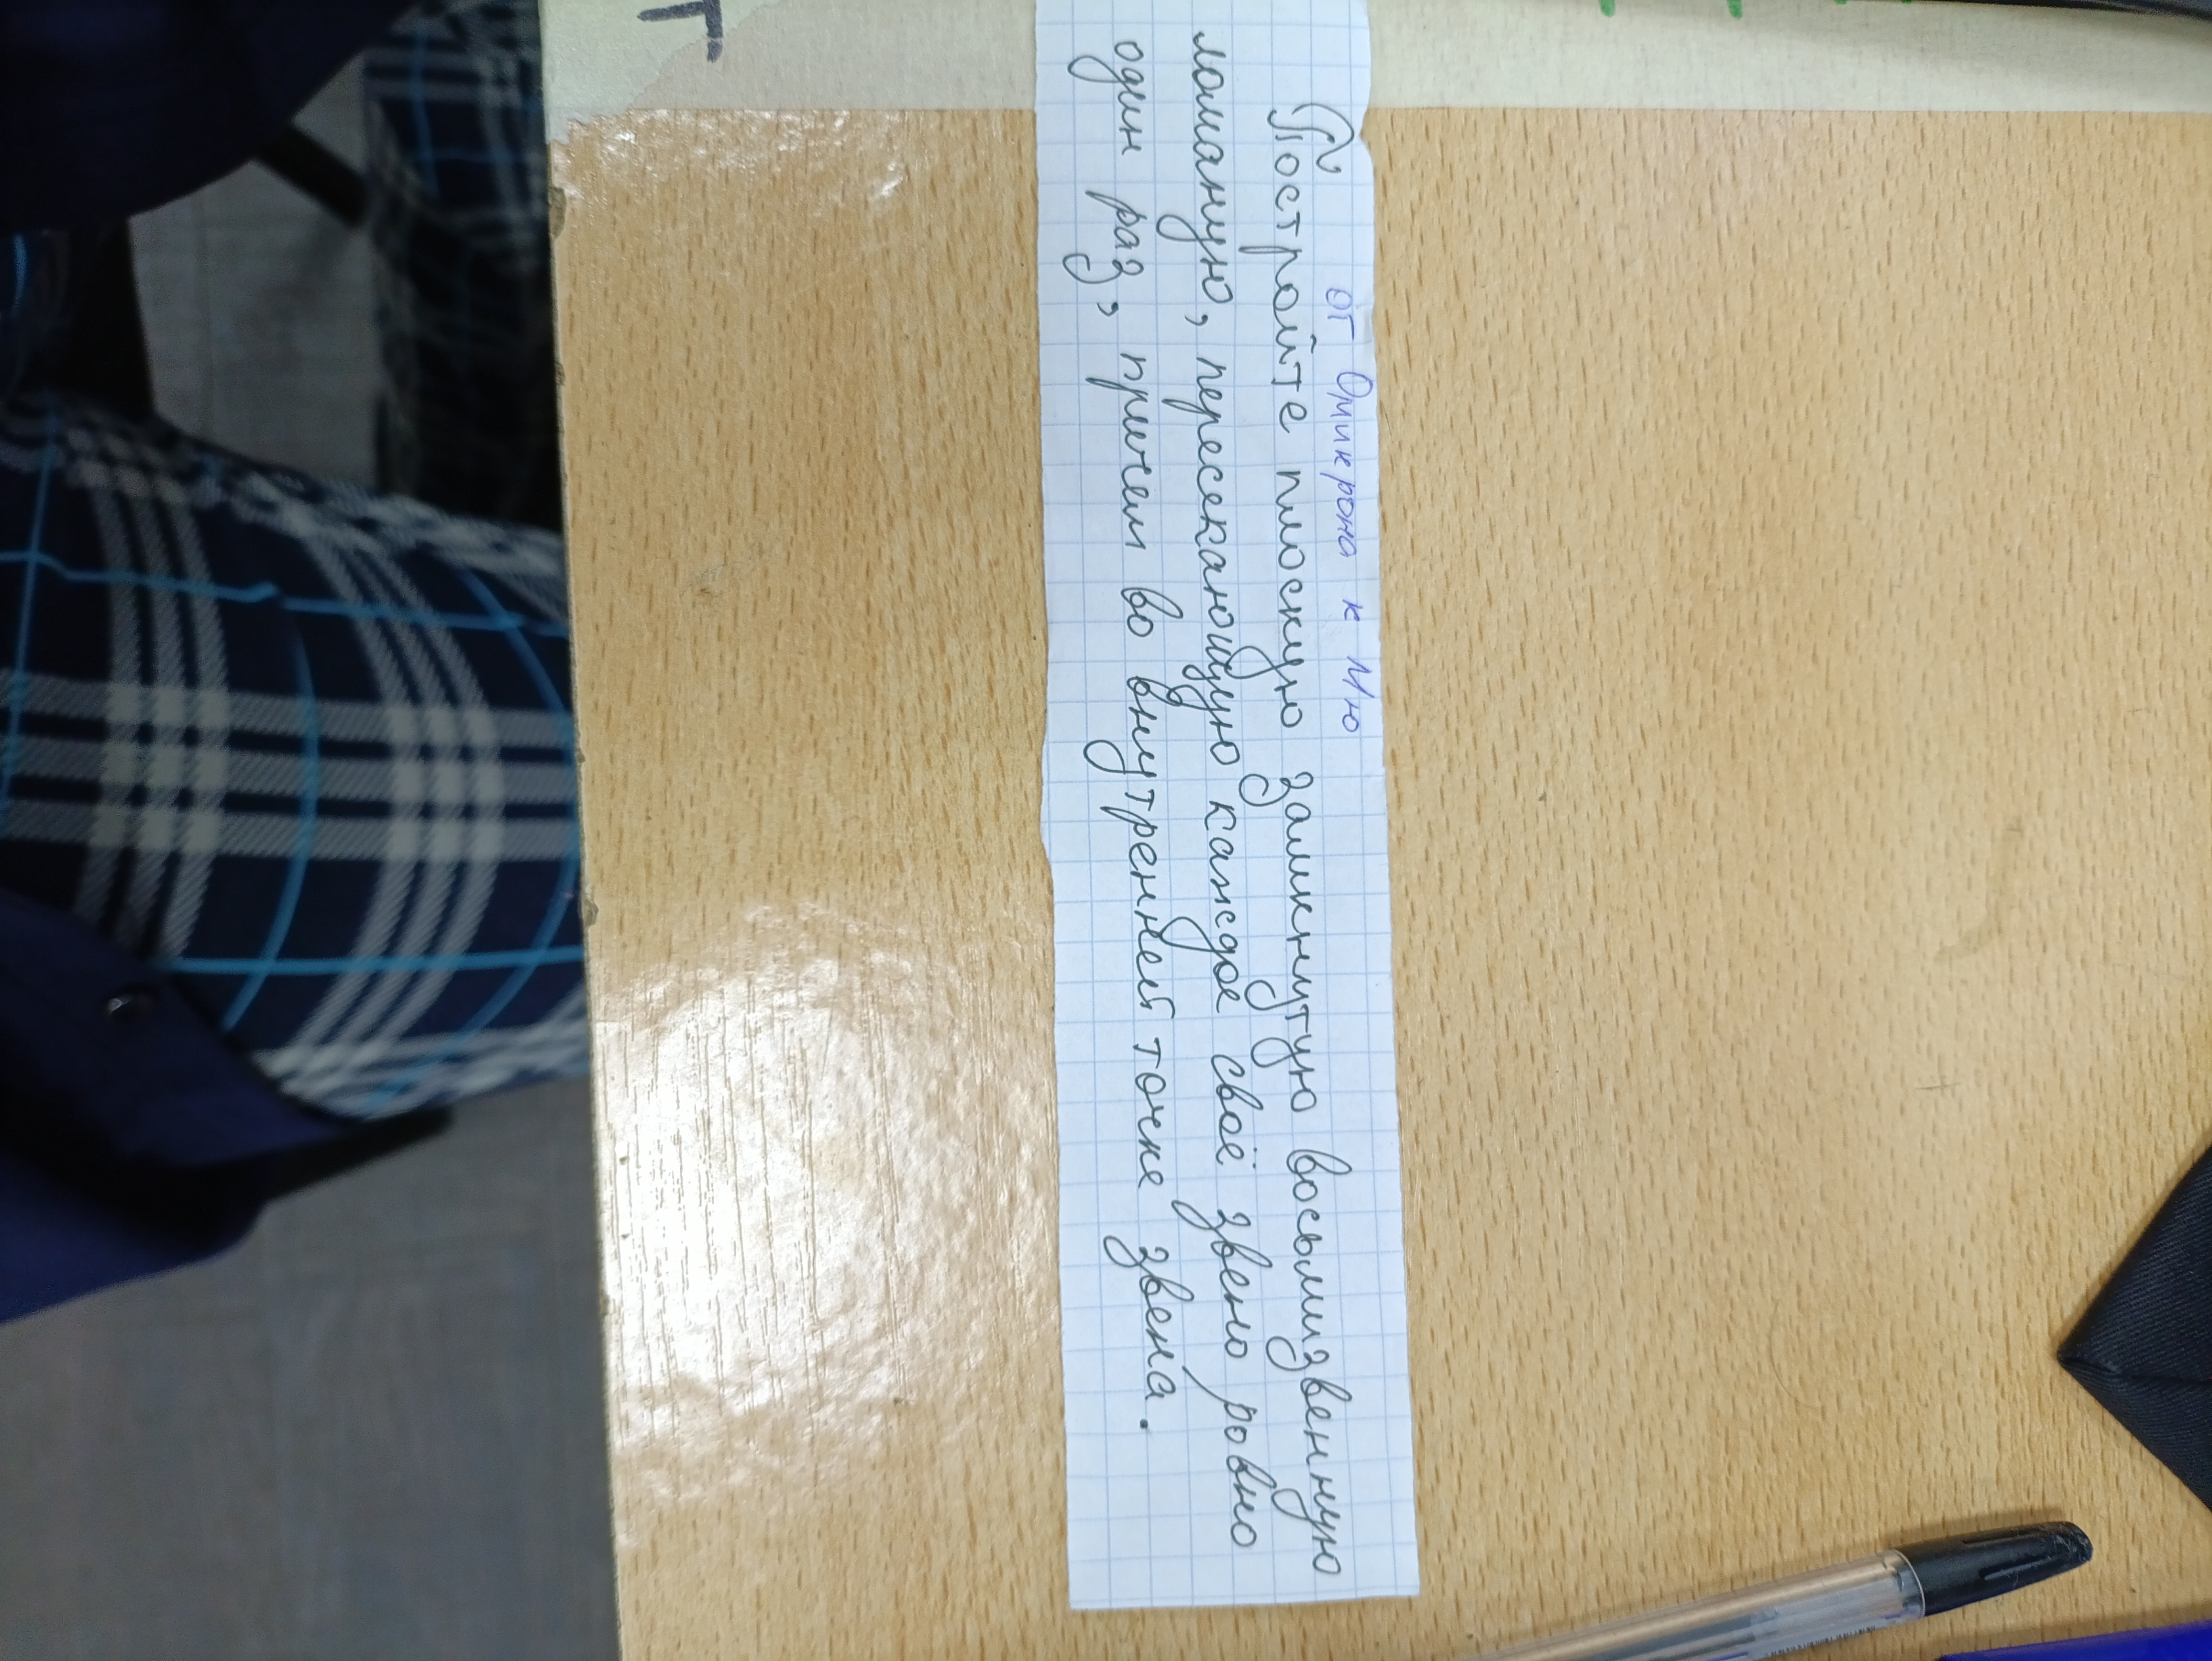 от Омикрона к Мю
Постройте плоскую замкнутую восьмизвенную
ломаную, пересекающую каждое своё звено ровно
один раз, причем во внутренней точке звена.
Г